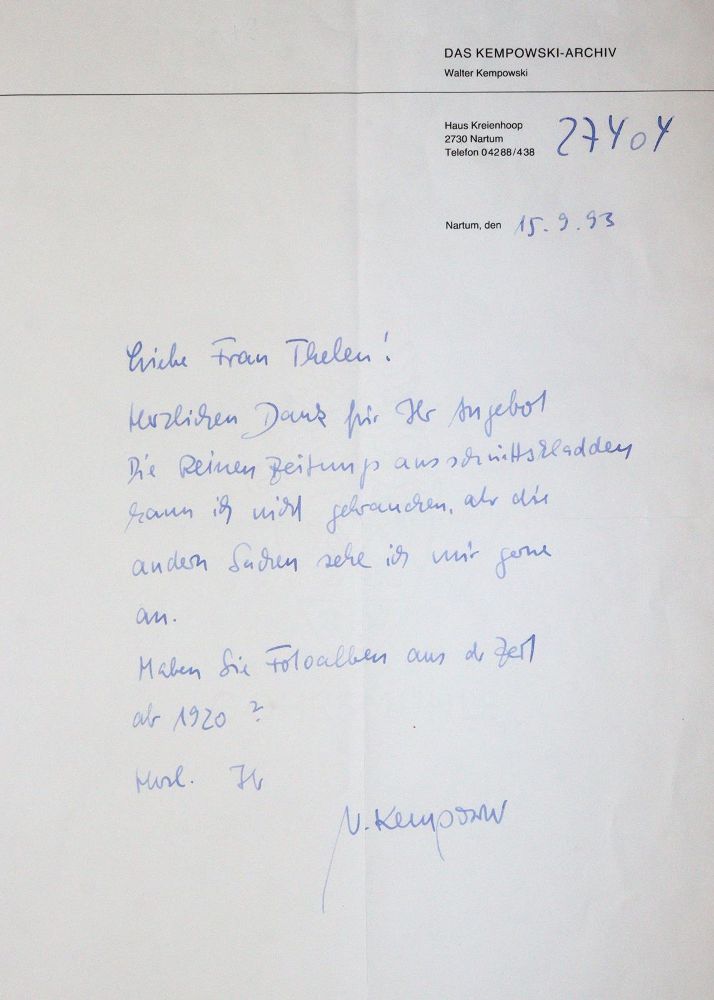 DAS KEMPOWSKI-ARCHIV
Walter Kempowski
Haus Kreienhoop
2730 Nartum
Telefon 04288/438
27404
Nartum, den 15.9.93
Liebe Frau Thelen!
Herzlichen Dank für Ihr Angebot
Die reinen Zeitungsausschnittskladden
kann ich nicht gebrauchen, aber die
andern Sachen sehe ich mir gerne
an.
Haben Sie Fotoalben aus der Zeit
ab 1920?
Herzl. Ihr
W. Kempowski